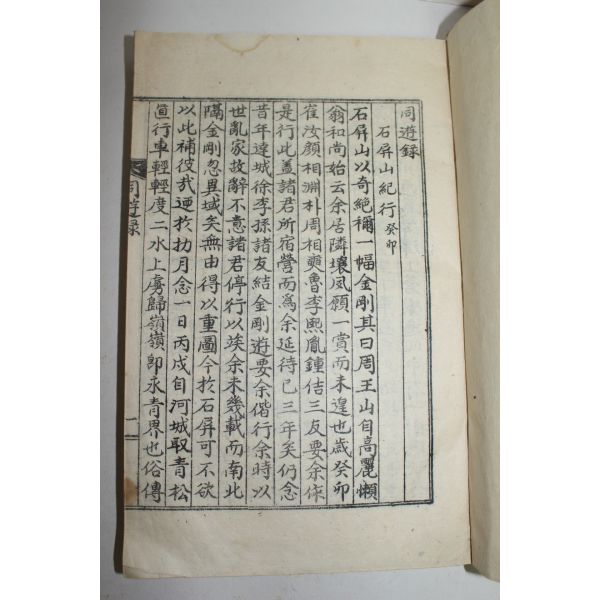 同遊錄
石屏山紀行 癸卯
石屏山以奇絶稱一幅金剛其曰周王山自高麗懶
翁和尚始云余居隣壤夙願一賞而未遑也歲癸卯
崔汝顔相淵朴周相奭魯李熙胤鍾佶三友要余作
是行此盖諸君所宿營而爲余延待已三年矣仍念
昔年達城徐李孫諸友結金剛遊要余偕行余時以
世亂家故辭不意諸君停行以竢余未幾載而南北
隔金剛忽異域矣無由得以重圖今於石屏可不欲
以此補彼哉廼於 月念一日丙戌自河城取青松
直行車輕輕度二水上虜歸嶺嶺卽永青界也俗傳
同遊錄
一